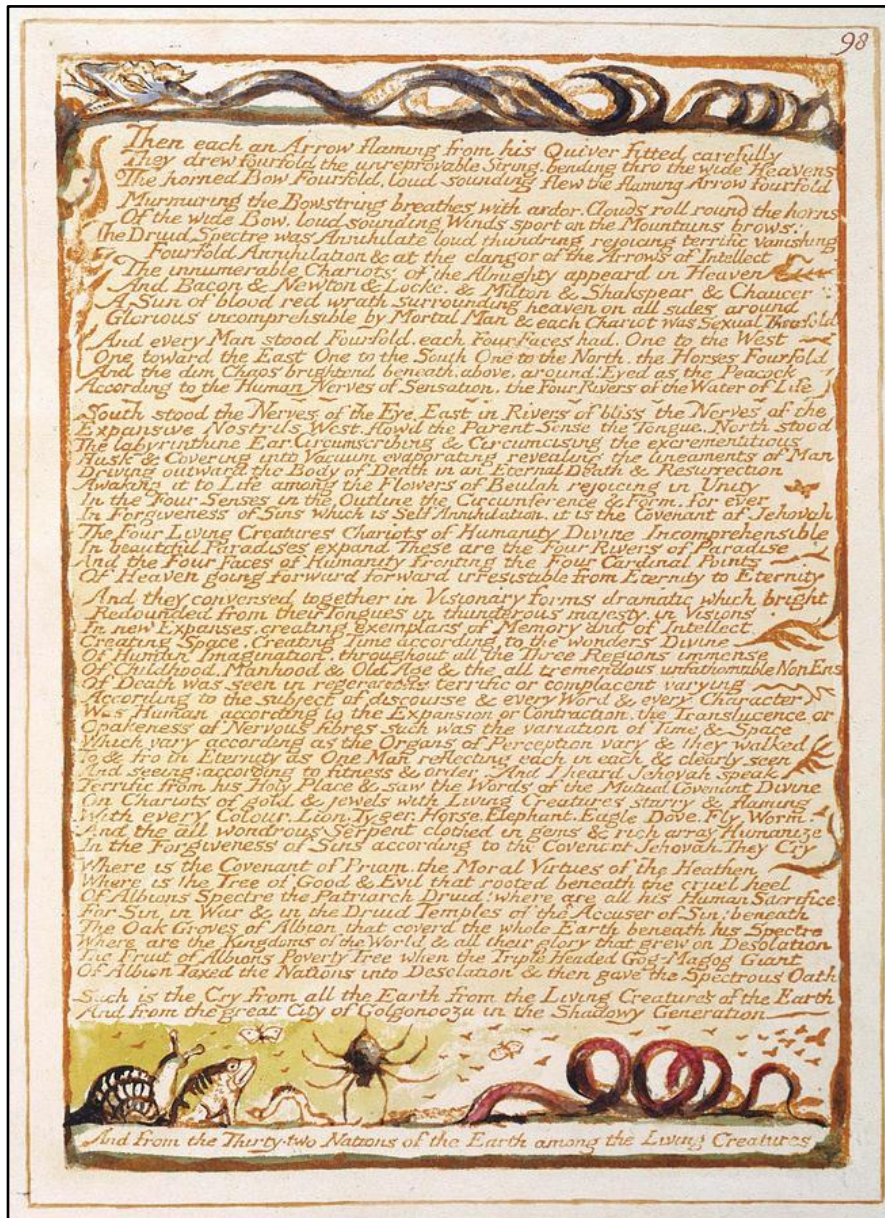 98
Then each an Arrow flaming from his Quiver fitted carefully
They drew fourfold the unreprovable String, bending thro the wide Heavens
The horned Bow Fourfold, loud sounding flew the flaming Arrow fourfold
Murmuring the Bowstring breathes with ardor. Clouds roll round the horns
Of the wide Bow, loud sounding Winds sport on the Mountains brows:
The Druid Spectre was Annihilate loud thundring rejoicing terrific vanishing
Fourfold Annihilation & at the clangor of the Arrows of Intellect
The innumerable Chariots of the Almighty appeard in Heaven
And Bacon & Newton & Locke, & Milton & Shakspear & Chaucer
A Sun of blood red wrath surrounding heaven on all sides around
Glorious incomprehsible by Mortal Man & each Chariot was Sexual Threefold
And every Man stood Fourfold. each Four Faces had. One to the West
One toward the East One to the South One to the North. the Horses Fourfold
And the dim Chaos brightend beneath, above, around! Eyed as the Peacock
According to the Human Nerves of Sensation, the Four Rivers of the Water of Life
South stood the Nerves of the Eye. East in Rivers of bliss the Nerves of the
Expansive Nostrils West, flowd the Parent Sense the Tongue. North stood
The labyrinthine Ear. Circumscribing & Circumcising the excrementitious
Husk & Covering into Vacuum evaporating revealing the lineaments of Man
Driving outward the Body of Death in an Eternal Death & Resurrection
Awaking it to Life among the Flowers of Beulah rejoicing in Unity
In the Four Senses in the Outline the Circumference & Form, for ever
In Forgiveness of Sins which is Self Annihilation. it is the Covenant of Jehovah
The Four Living Creatures Chariots of Humanity Divine Incomprehensible
In beautiful Paradises expand These are the Four Rivers of Paradise
And the Four Faces of Humanity fronting the Four Cardinal Points
Of Heaven going forward forward irresistible from Eternity to Eternity
And they conversed together in Visionary forms dramatic which bright
Redounded from their Tongues in thunderous majesty, in Visions
In new Expanses, creating exemplars of Memory and of Intellect
Creating Space, Creating Time according to the wonders Divine
Of Human Imagination, throughout all the Three Regions immense
Of Childhood, Manhood & Old Age & the all tremendous unfathomable Non Ens
Of Death was seen in regenerations terrific or complacent varying
According to the subject of discourse & every Word & every Character
Was Human according to the Expansion or Contraction, the Translucence or
Opakeness of Nervous fibres such was the variation of Time & Space
Which vary according as the Organs of Perception vary & they walked
To & fro in Eternity as One Man reflecting each in each & clearly seen
And seeing: according to fitness & order. And I heard Jehovah speak
Terrific from his Holy Place & saw the Words of the Mutual Covenant Divine
On Chariots of gold & jewels with Living Creatures starry & flaming
With every Colour. Lion. Tyger. Horse. Elephant. Eagle Dove. Fly, Worm.
And the all wondrous Serpent clothed in gems & rich array Humanize
In the Forgiveness of Sins according to the Covenant Jehovah. They Cry
Where is the Covenant of Priam, the Moral Virtues of the Heathen
Where is the Tree of Good & Evil that rooted beneath the cruel heel
Of Albions Spectre the Patriarch Druid! where are all his Human Sacrifice
For Sin in War & in the Druid Temples of the Accuser of Sin: beneath
The Oak Groves of Albion that coverd the whole Earth beneath his Spectre
Where are the Kingdoms of the World & all their glory that grew on Desolation
The Fruit of Albions Poverty Tree when the Triple Headed Gog-Magog Giant
Of Albion Taxed the Nations into Desolation & then gave the Spectrous Oath
Such is the Cry from all the Earth from the Living Creatures of the Earth
And from the great City of Golgonooza in the Shadowy Generation
And from the Thirty-two Nations of the Earth among the Living Creatures